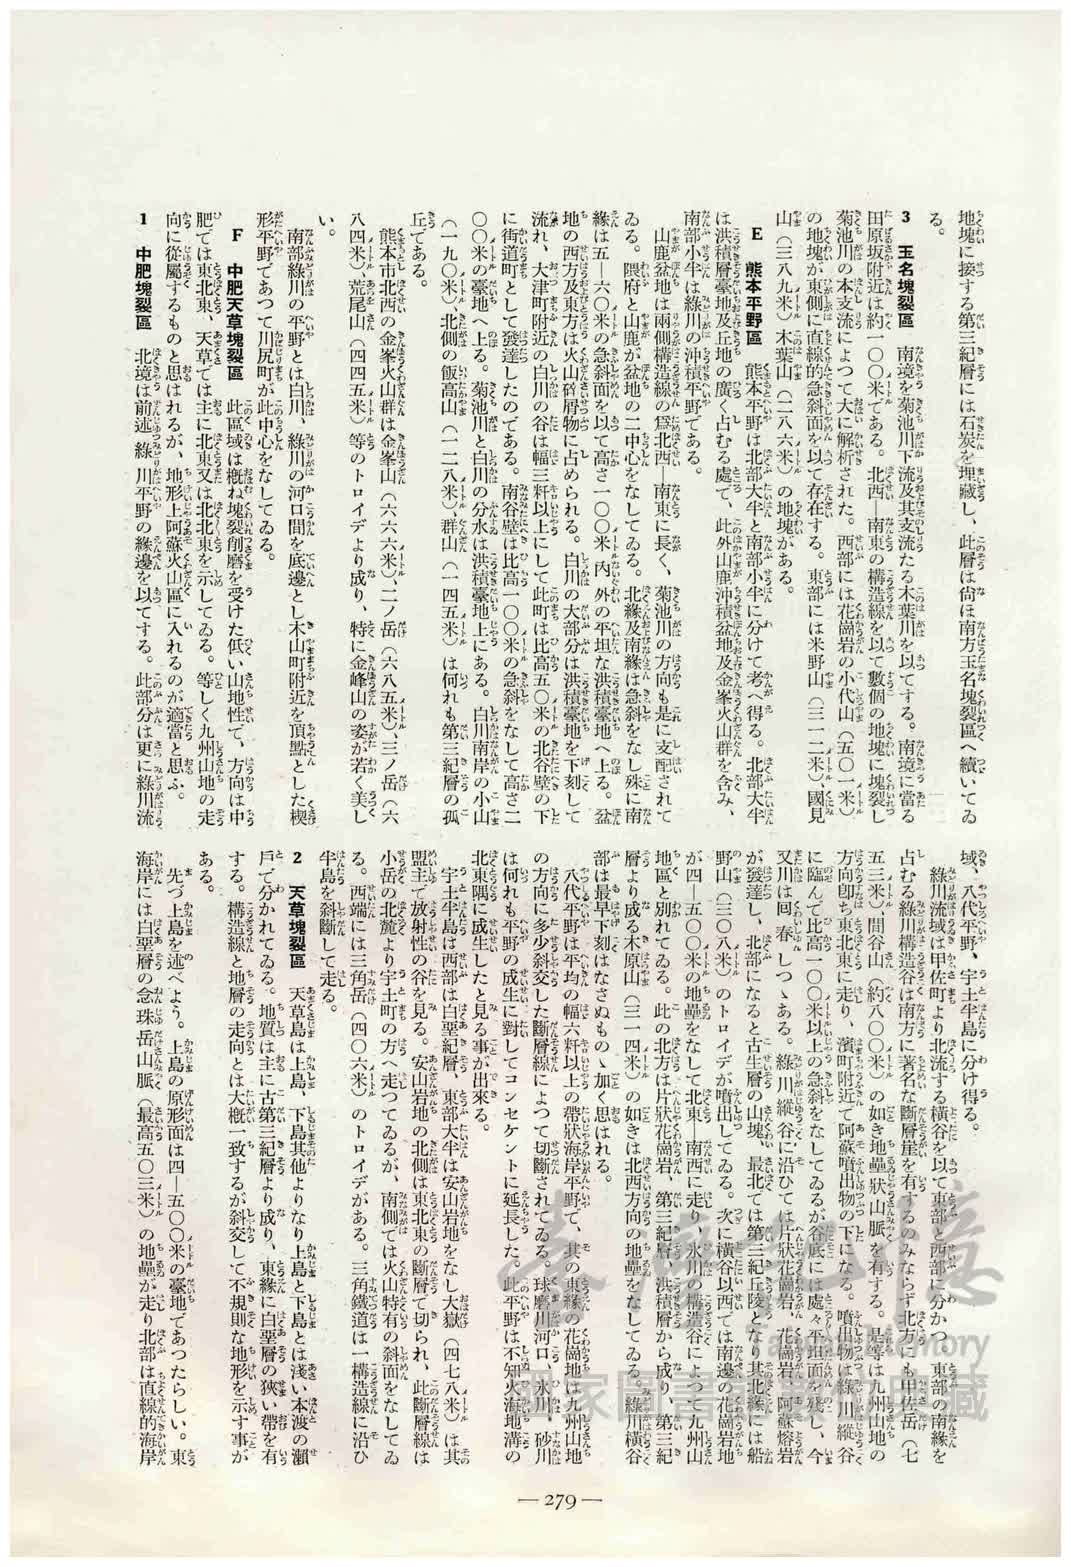 地塊に接する第三紀層には石炭を埋藏し、此層は尙ほ南方玉名塊裂區へ續いてゐ
る。
3 玉名塊裂區 南境を菊池川下流及其支流たる木葉川を以てする。南境に當る
田原坂附近は約一〇〇米である。北西—南東の構造線を以て數個の地塊に塊裂し
菊池川の本支流によつて大に解析された。西部には花崗岩の小代山（五〇一米）
の地塊が東側に直線的急斜面を以て存在する。東部には米野山（三一二米）、國見
山（三八九米）木葉山（二八六米）の地塊がある。
E 熊本平野區 熊本平野は北部大半と南部小半に分けて考へ得る。北部大半
は洪積層臺地及丘地の廣く占むる處で、此外山鹿沖積盆地及金峯火山群を含み、
南部小半は綠川の沖積平野である。
山鹿盆地は兩側構造線の爲北西—南東に長く、菊池川の方向も是に支配されて
ゐる。隈府と山鹿が盆地の二中心をなしてゐる。北緣及南緣は急斜をなし殊に南
緣は五—六〇米の急斜面を以て高さ一〇〇米內外の平坦な洪積臺地へ上る。盆
地の西方及東方は火山碎屑物に占められる。白川の大部分は洪積臺地を下刻して
流れ、大津町附近の白川の谷は幅三粁以上にして此町は比高五〇米の北谷壁の下
に街道町として發達したのである。南谷壁は比高一〇〇米の急斜をなして高さ二
〇〇米の臺地へ上る。菊池川と白川の分水は洪積臺地上にある。白川南岸の小山
（一九〇米）、北側の飯高山（一二八米）、群山（一四五米）は何れも第三紀層の孤
丘である。
熊本市北西の金峯火山群は金峯山（六六六米）、二ノ岳（六八五米）三ノ岳（六
八四米）、荒尾山（四四五米）等のトロイデより成り、特に金峰山の姿が若く美し
い。
南部綠川の平野とは白川、綠川の河口間を底邊とし木山町附近を頂點とした楔
形平野であつて川尻町が此中心をなしてゐる。
F 中肥天草塊裂區 此區域は槪ね塊裂削磨を受けた低い山地性で、方向は中
肥では東北東、天草では主に北東又は北北東を示してゐる。等しく九州山地の走
向に從屬するものと思はれるが、地形上阿蘇火山區に入れるのが適當と思ふ。
1 中肥塊裂區 北境は前述綠川平野の緣邊を以てする。此部分は更に綠川流
域、八代平野、宇土半島に分け得る。
綠川流域は甲佐町より北流する橫谷を以て東部と西部に分かつ、東部の南緣を
占むる綠川構造谷は南方に著名な斷層崖を有するのみならず北方にも甲佐岳（七
五三米）、間谷山（約八〇〇米）の如き地壘狀山脈を有する。是等は九州山地の
方向卽ち東北東に走り、濱町附近で阿蘇噴出物の下になる。噴出物は綠川縱谷
に臨んで比高一〇〇米以上の急斜をなしてゐるが谷底には處々平坦面を殘し、今
又川は囘春しつゝある。綠川縱谷に沿ひては片狀花崗岩、花崗岩、阿蘇熔岩
が發達し、北部になると古生層の山塊、最北では第三紀丘陵となり其北緣には船
野山（三〇八米）のトロイデが噴出してゐる。次に橫谷以西では南邊の花崗岩地
が四—五〇〇米の地壘をなして北東—南西に走り、氷川の構造谷によつて九州山
地區と別れてゐる。此の北方は片狀花崗岩、第三紀層、洪積層から成り、第三紀
層より成る木原山（三一四米）の如きは北西方向の地壘をなしてゐる。綠川橫谷
部は最早下刻はなさぬものゝ加く思はれる。
八代平野は平均の幅六粁以上の帶狀海岸平野で、其の東緣の花崗地は九州山地
の方向に多少斜交した斷層線によつて切斷されてゐる。球磨川河口、氷川、砂川
は何れも平野の成生に對してコンセケントに延長した。此平野は不知火海地溝の
北東隅に成生したと見る事が出來る。
宇土半島は西部は白堊紀層、東部大半は安山岩地をなし大嶽（四七八米）は其
盟主で放射性の谷を見る。安山岩地の北側は東北東の斷層で切られ、此斷層線は
小岳の北麓より宇土町の方へ走つてゐるが、南側では火山特有の斜面をなしてゐ
る。西端には三角岳（四〇六米）のトロイデがある。三角鐵道は一構造線に沿ひ
半島を斜斷して走る。
2 天草塊裂區 天草島は上島、下島其他よりなり上島と下島とは淺い本渡の瀨
戶で分かれてゐる。地質は主に古第三紀層より成り、東緣に白堊層の狹い帶を有
する。構造線と地層の走向とは大槪一致するが斜交して不規則な地形を示す事が
ある。
先づ上島を述べよう。上島の原形面は四—五〇〇米の臺地であつたらしい。東
海岸には白堊層の念珠岳山脈（最高五〇三米）の地壘が走り北部は直線的海岸
— 279 —
臺灣記憶
Taiwan Memory
國家圖書館數位典藏